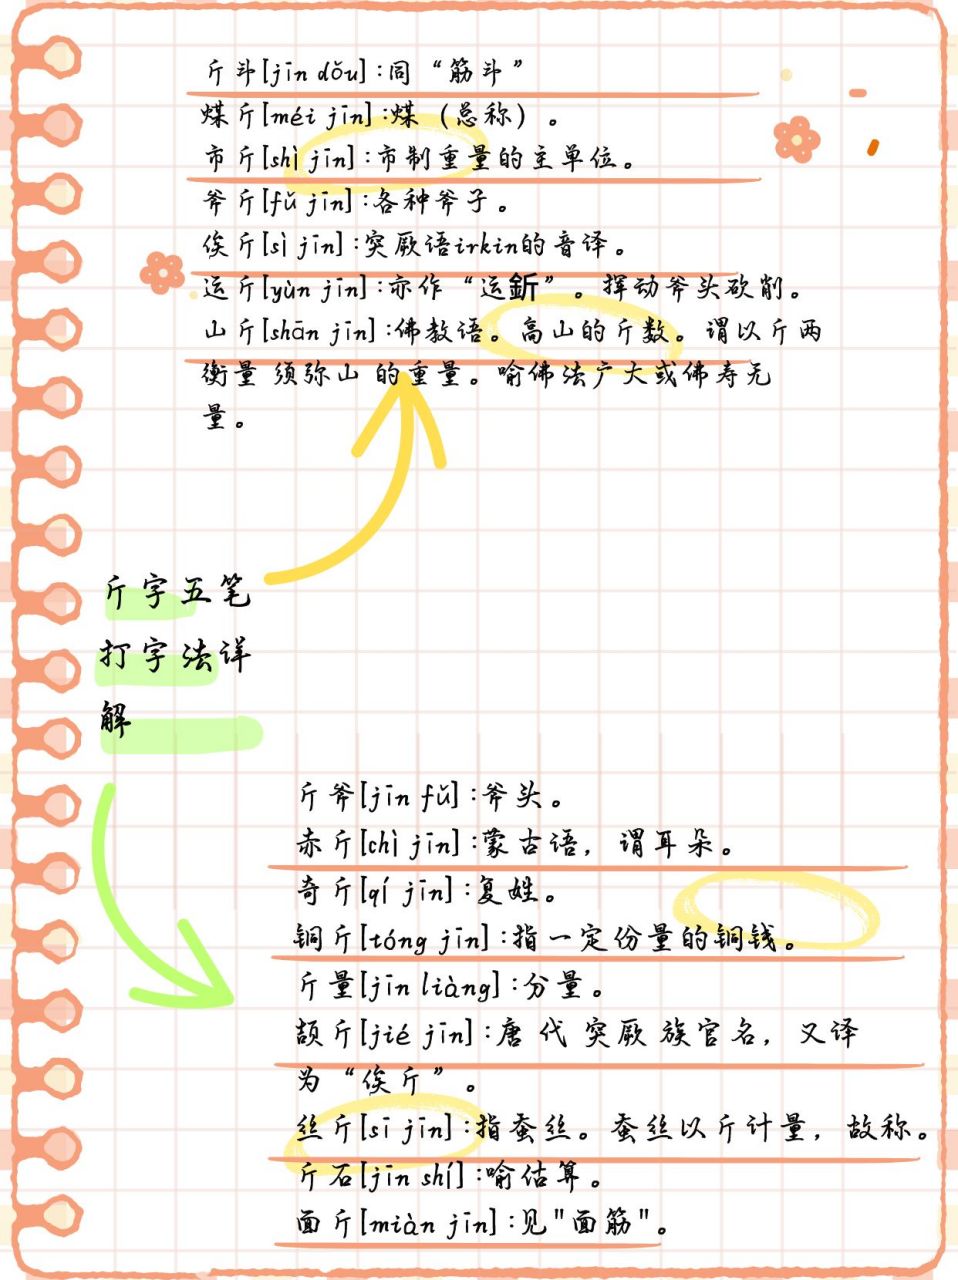 斤斗[jīn dǒu]:同“筋斗”
煤斤[méi jīn]:煤（总称）。
市斤[shì jīn]:市制重量的主单位。
斧斤[fǔ jīn]:各种斧子。
俟斤[sì jīn]:突厥语irkin的音译。
运斤[yùn jīn]:亦作“运釿”。挥动斧头砍削。
山斤[shān jīn]:佛教语。高山的斤数。谓以斤两
衡量 须弥山 的重量。喻佛法广大或佛寿无
量。
斤字五笔
打字法详
解
斤斧[jīn fǔ]:斧头。
赤斤[chì jīn]:蒙古语，谓耳朵。
奇斤[qí jīn]:复姓。
铜斤[tóng jīn]:指一定份量的铜钱。
斤量[jīn liàng]:分量。
颉斤[jié jīn]:唐 代 突厥 族官名，又译
为“俟斤”。
丝斤[sī jīn]:指蚕丝。蚕丝以斤计量，故称。
斤石[jīn shí]:喻估算。
面斤[miàn jīn]:见"面筋"。